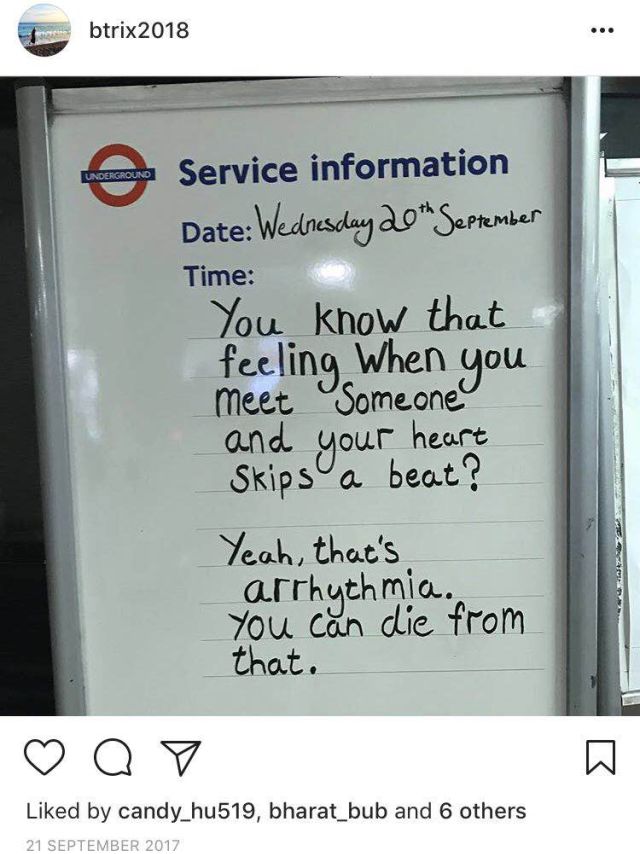 btrix2018
UNDERGROUND
Service information
Date: Wednesday 20th September
Time:
You know that
feeling when you
meet someone
and your heart
skips a beat?
Yeah, that's
arrhythmia.
You can die from
that.
Liked by candy_hu519, bharat_bub and 6 others
21 SEPTEMBER 2017